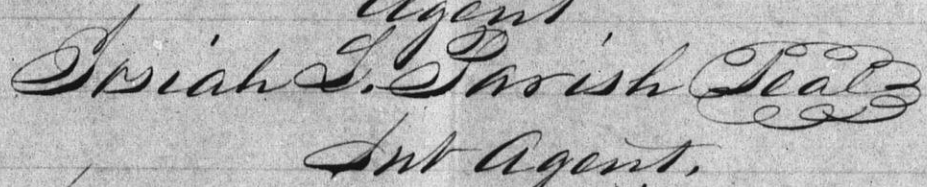 Agent
Josiah L. Parish Seal
Sub Agent.